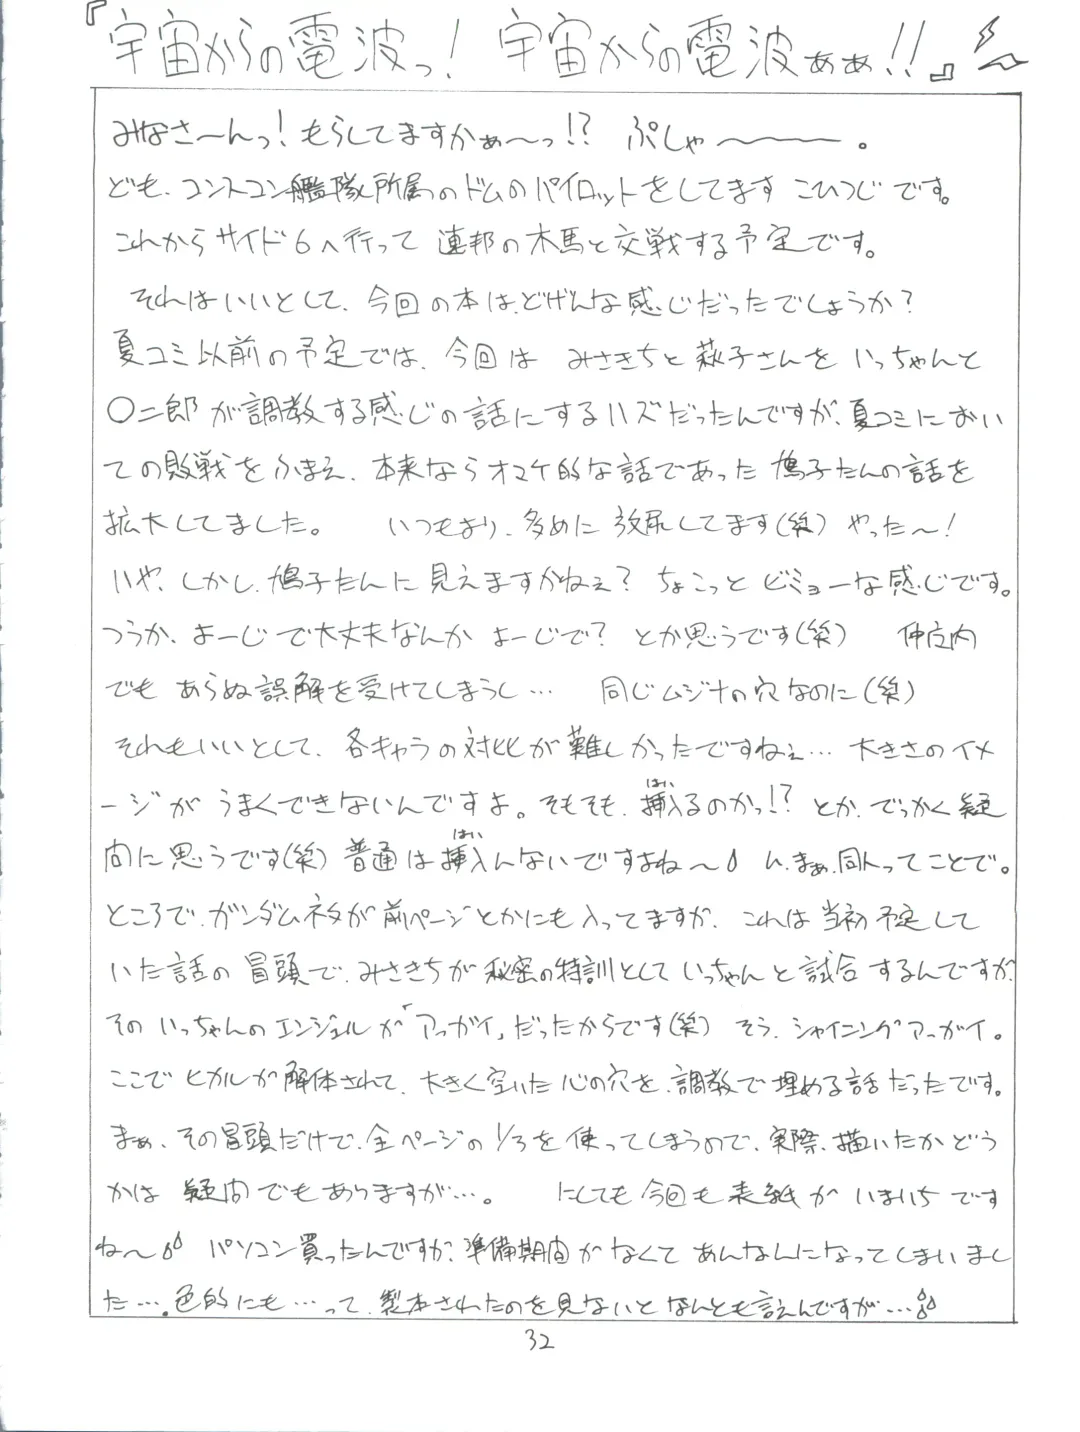 『宇宙からの電波っ! 宇宙からの電波ぁぁ!!』
みなさ〜んっ!もらしてますかぁ〜っ!? ぷしゃ〜〜〜。
ども、コントコン艦隊所属のドムのパイロットをしてます こひつじです。
これからサイド6へ行って 連邦の木馬と交戦する予定です。
それはいいとして、今回の本は、どげんな感じだったでしょうか?
夏コミ以前の予定では、今回は みさきちと萩子さんを いっちゃんと
〇二郎が調教する感じの話にするハズだったんですが、夏コミにおい
ての敗戦をふまえ、本来ならオマケ的な話であった 鳩子たんの話を
拡大してました。 いつもより、多めに放尿してます(笑) やった〜!
いや、しかし、鳩子たんに見えますかねぇ? ちょこっと ビミョーな感じです。
つうか、よーじで大丈夫なんか よーじで? とか思うです(笑) 仲店内
でも あらぬ誤解を受けてしまうし… 同じムジナの穴なのに(笑)
それもいいとして、各キャラの対比が難しかったですねぇ… 大きさのイメ
ージが うまくできないんですよ。そもそも、挿入るのかっ!?とか、でっかく疑
はい
問に思うです(笑) 普通は挿入んないですよね〜 ん、まぁ、同人ってことで。
はい
ところで、ガンダムネタが前ページとかにも入ってますが、これは当初予定して
いた話の冒頭で、みさきちが秘密の特訓としていっちゃんと試合するんですが、
そのいっちゃんのエンジェルが「アッガイ」だったからです(笑) そう、シャイニングアッガイ。
ここでヒカルが解体されて、大きく空いた心の穴を、調教で埋める話だったです。
まぁ、その冒頭だけで、全ページの1/3を使ってしまうので、実際、描いたかどう
かは 疑問でもありますが…。 にしても今回も表紙がいまいちです
ね〜 パソコン買ったんですが、準備期間がなくて あんなんになってしまいまし
た…。色的にも…って、製本されたのを見ないとなんとも言えんですが…
32